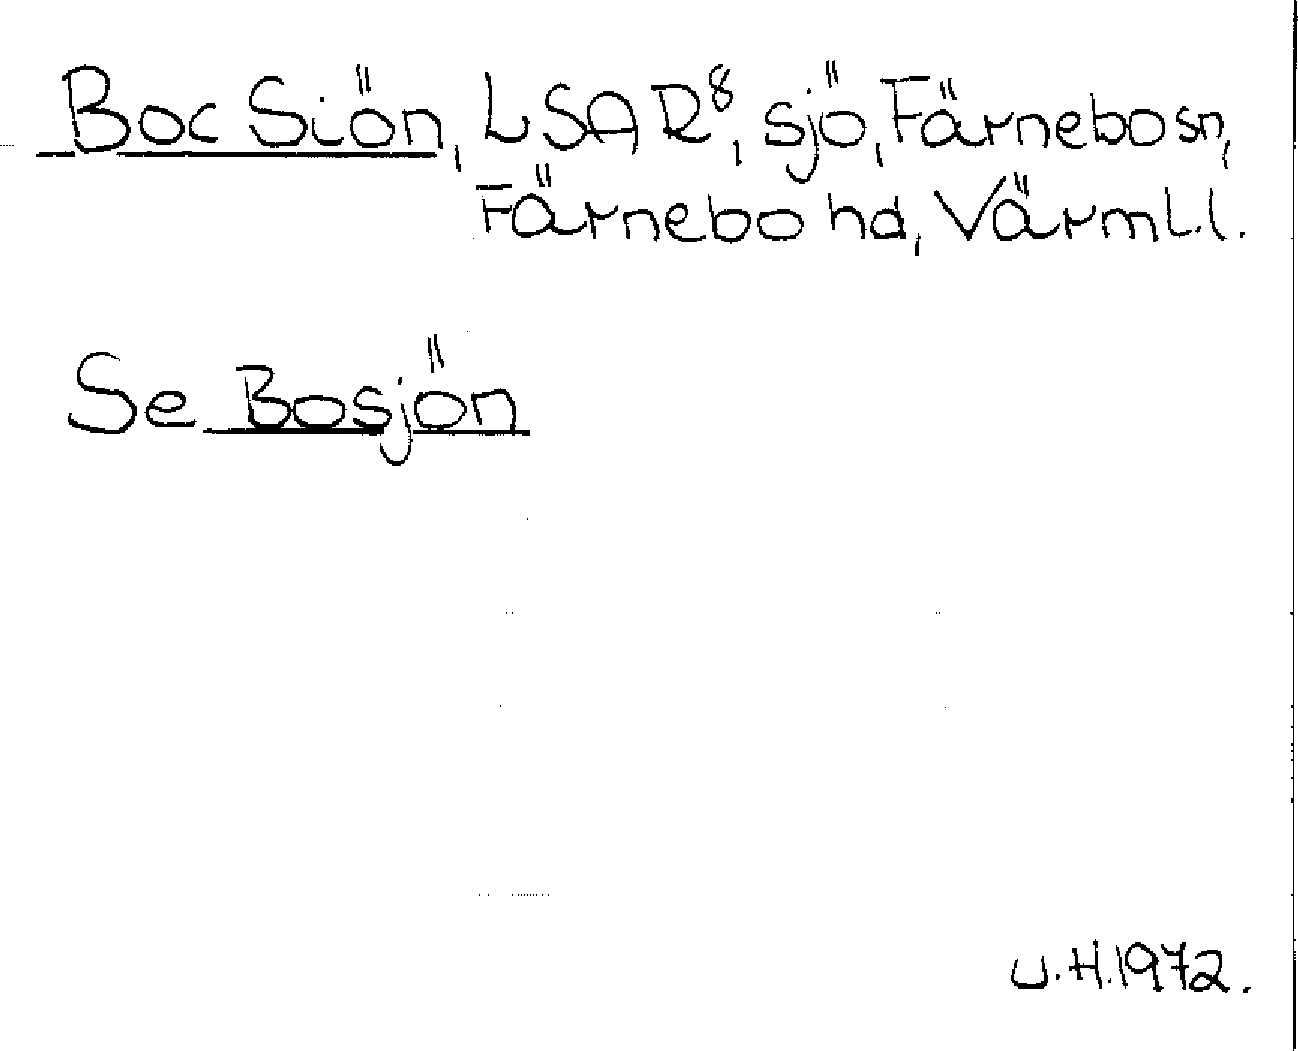 Boc Siön, LSAR⁸, sjö, Färnebo sn,
Färnebo hd, Värml. l.
Se Bosjön
U.H. 1972.